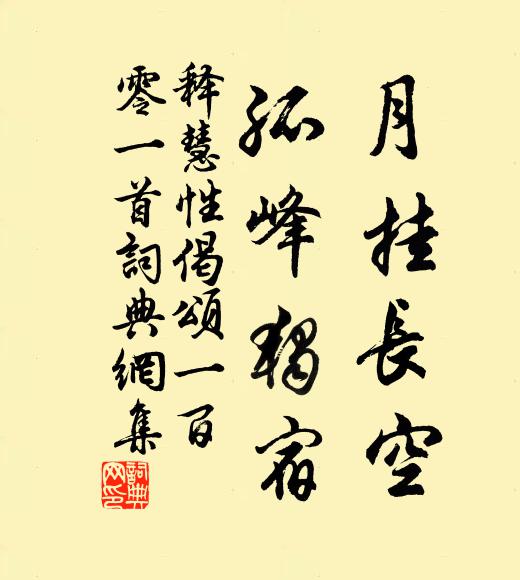 月挂長空
孤峰獨宿
释慧性偈頌一百
零一首詞典網集
詞典网印